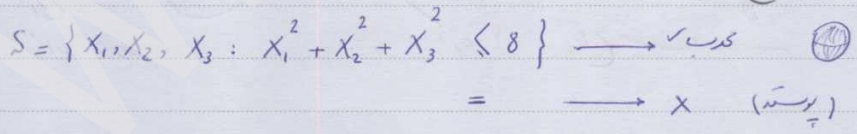 S = { X₁, X₂, X₃ : X₁² + X₂² + X₃² ≤ 8 } ⟶ ✓ محدب
= ⟶ × (پوسته)